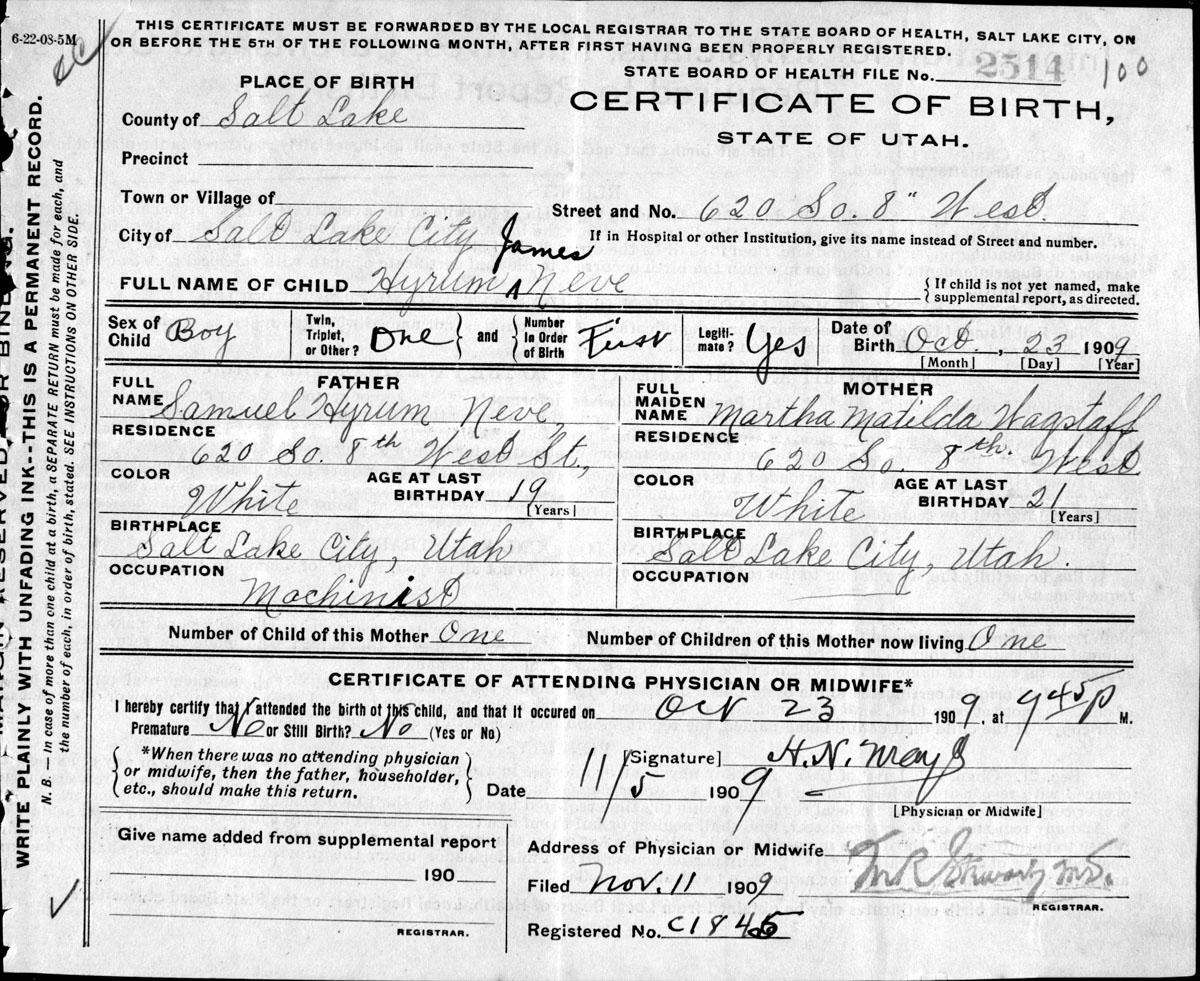 THIS CERTIFICATE MUST BE FORWARDED BY THE LOCAL REGISTRAR TO THE STATE BOARD OF HEALTH, SALT LAKE CITY, ON
OR BEFORE THE 5TH OF THE FOLLOWING MONTH, AFTER FIRST HAVING BEEN PROPERLY REGISTERED.
6-22-08-5M
STATE BOARD OF HEALTH FILE No. 2514 100
PLACE OF BIRTH
CERTIFICATE OF BIRTH,
STATE OF UTAH.
County of Salt Lake
Precinct
Town or Village of
Street and No. 620 So. 8" West.
City of Salt Lake City
If in Hospital or other Institution, give its name instead of Street and number.
James
FULL NAME OF CHILD Hyrum ^ Neve
{If child is not yet named, make
supplemental report, as directed.
Sex of Child Boy
Twin, Triplet, or Other? One } and { Number in Order of Birth First
Legiti-mate? Yes
Date of Birth Oct., 23 1909
[Month] [Day] [Year]
FATHER
FULL NAME Samuel Hyrum Neve,
RESIDENCE
620 So. 8th West St.,
COLOR White
AGE AT LAST BIRTHDAY 19
[Years]
BIRTHPLACE
Salt Lake City, Utah
OCCUPATION
Machinist
MOTHER
FULL MAIDEN NAME Martha Matilda Wagstaff
RESIDENCE
620 So. 8th. West
COLOR White
AGE AT LAST BIRTHDAY 21
[Years]
BIRTHPLACE
Salt Lake City, Utah.
OCCUPATION
Number of Child of this Mother One
Number of Children of this Mother now living One
CERTIFICATE OF ATTENDING PHYSICIAN OR MIDWIFE*
I hereby certify that I attended the birth of this child, and that it occured on Oct 23 1909, at 9 45 P M.
Premature No or Still Birth? No (Yes or No)
{*When there was no attending physician
or midwife, then the father, householder,
etc., should make this return.}
[Signature] H. N. Mayo
Date 11/5 1909
[Physician or Midwife]
Give name added from supplemental report
190
REGISTRAR.
Address of Physician or Midwife
Filed Nov. 11 1909
M.D.
REGISTRAR.
Registered No. C1845
WRITE PLAINLY WITH UNFADING INK--THIS IS A PERMANENT RECORD.
N. B. — In case of more than one child at a birth, a SEPARATE RETURN must be made for each, and
the number of each, in order of birth, stated. SEE INSTRUCTIONS ON OTHER SIDE.